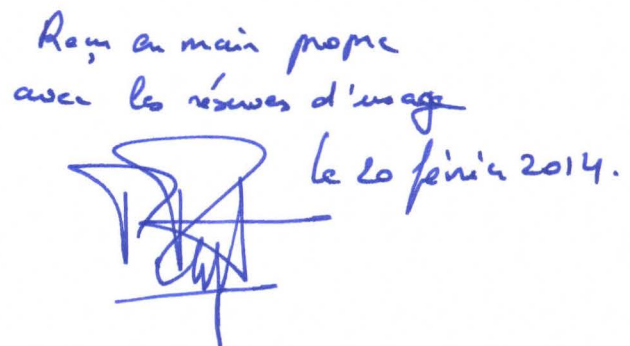 Reçu en main propre
avec les réserves d'usage
le 20 février 2014.